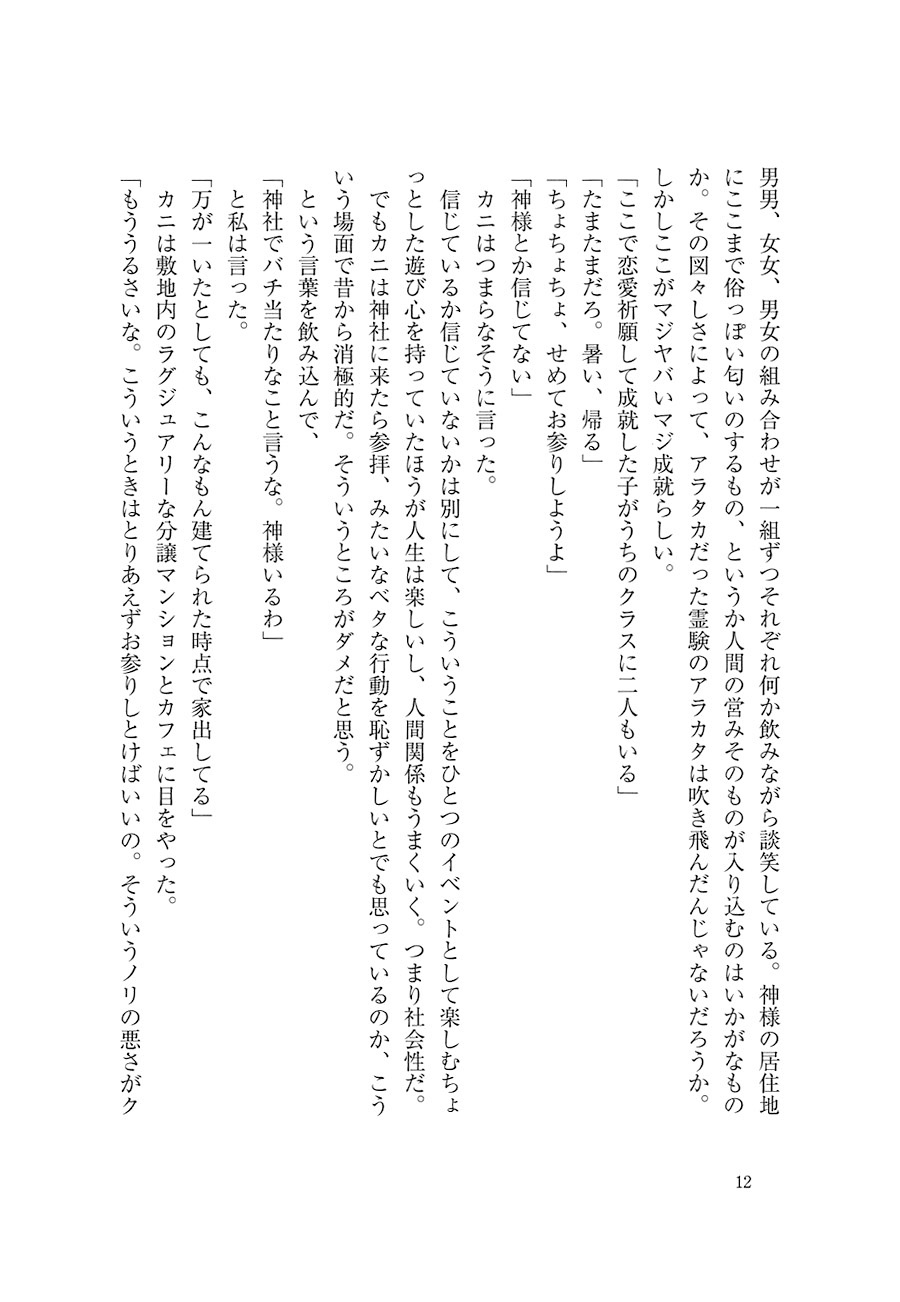 男男、女女、男女の組み合わせが一組ずつそれぞれ何か飲みながら談笑している。神様の居住地
にここまで俗っぽい匂いのするもの、というか人間の営みそのものが入り込むのはいかがなもの
か。その図々しさによって、アラタカだった霊験のアラカタは吹き飛んだんじゃないだろうか。
しかしここがマジヤバいマジ成就らしい。
「ここで恋愛祈願して成就した子がうちのクラスに二人もいる」
「たまたまだろ。暑い、帰る」
「ちょちょちょ、せめてお参りしようよ」
「神様とか信じてない」
カニはつまらなそうに言った。
信じているか信じていないかは別にして、こういうことをひとつのイベントとして楽しむちょ
っとした遊び心を持っていたほうが人生は楽しいし、人間関係もうまくいく。つまり社会性だ。
でもカニは神社に来たら参拝、みたいなベタな行動を恥ずかしいとでも思っているのか、こう
いう場面で昔から消極的だ。そういうところがダメだと思う。
という言葉を飲み込んで、
「神社でバチ当たりなこと言うな。神様いるわ」
と私は言った。
「万が一いたとしても、こんなもん建てられた時点で家出してる」
カニは敷地内のラグジュアリーな分譲マンションとカフェに目をやった。
「もううるさいな。こういうときはとりあえずお参りしとけばいいの。そういうノリの悪さがク
12